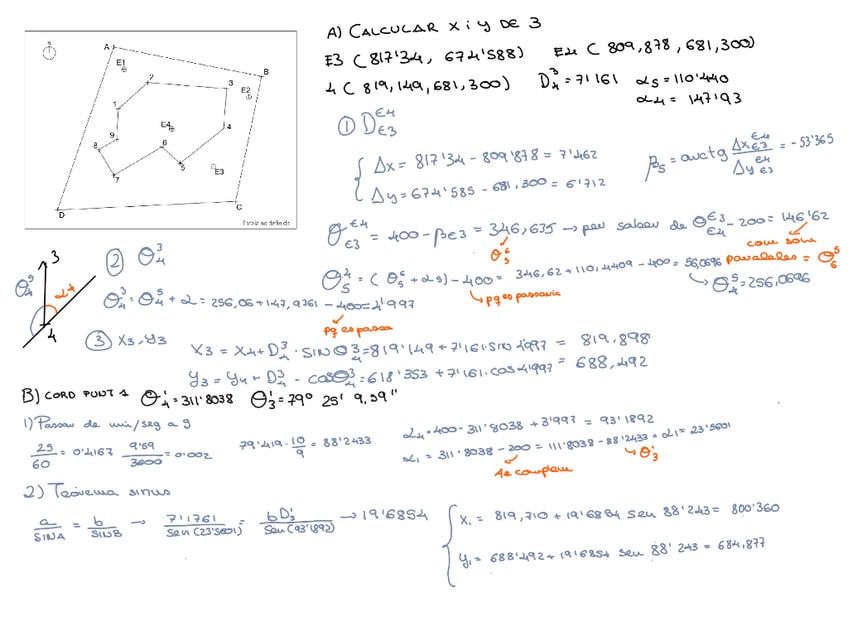 A) CALCULAR X i y DE 3
E3 (817'34, 674'588) E4 (809,878, 681,300)
4 (819,149, 681,300) D₄³ = 7'161 α5 = 110'440
α4 = 147'93
N
A
B
C
D
E1
E2
E3
E4
1
2
3
4
5
6
7
8
9
Escala no definida
① D_E3^E4
Δx = 817'34 - 809'878 = 7'462
Δy = 674'585 - 681,300 = 6'712
β5 = arctg Δx_E3^E4 / Δy_E3^E4 = -53'365
θ_E3^E4 = 400 - βE3 = 346,635 → per saber de θ_E4^E3 - 200 = 146'62
θ_5^6
com són
paral·leles = θ_6^5
② θ_4^3
θ_5^4 = (θ_5^6 + α5) - 400 = 346,62 + 110,4409 - 400 = 56,0696
↳ pq es passaria
↳ θ_4^5 = 256,0696
3
θ_4^5
α4
4
θ_4^3 = θ_4^5 + α = 256,06 + 147,9361 - 400 = 4'997
pq es passa
③ X3, Y3
X3 = X4 + D_4^3 · SIN θ_4^3 = 819'149 + 7'161 · sin 4'997 = 819,898
Y3 = Y4 + D_4^3 - cos θ_4^3 = 618'353 + 7'161 · cos 4'997 = 688,492
B) CORD PUNT 1 θ_4^1 = 311'8038 θ_3^1 = 79º 25' 9,59"
1) Passar de min/seg a g
25/60 = 0'4167 9'59/3600 = 0'002 79'419 · 10/9 = 88'2433
α4 = 400 - 311'8038 + 3'997 = 93'1892
α1 = 311'8038 - 200 = 111'8038 - 88'2433 = α1 = 23'5601
↳ θ_3^1
2) Teorema sinus
a/SINA = b/SINB → 7'1761/sen(23'5601) = bD_3^1/sen(93'1892) → 19'6854
X1 = 819,710 + 19'6854 seu 88'243 = 800'360
y1 = 688'492 + 19'6854 seu 88'243 = 684,877